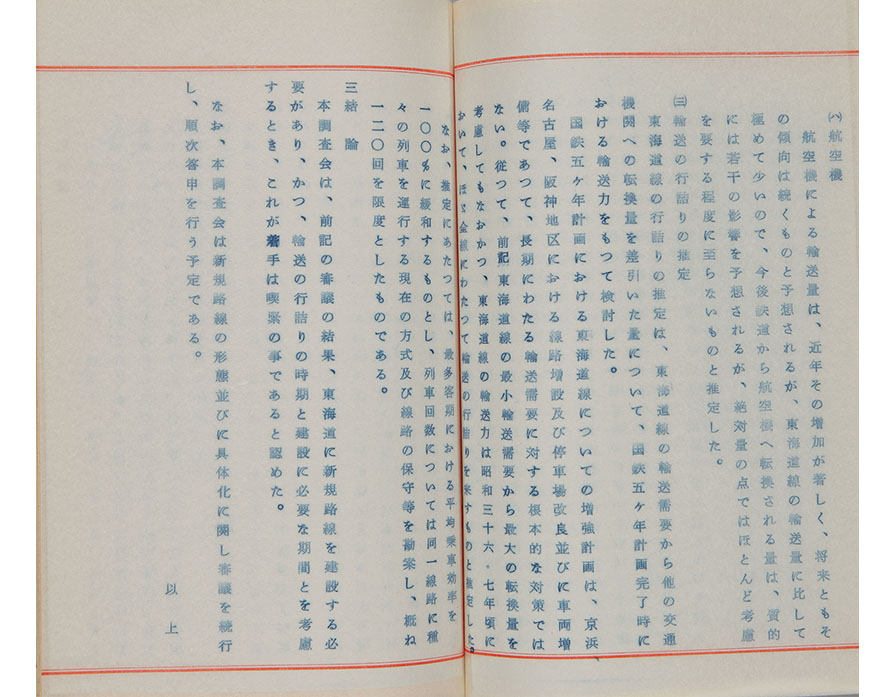 ㈥ 航空機
航空機による輸送量は、近年その増加が著しく、将来ともそ
の傾向は続くものと予想されるが、東海道線の輸送量に比して
極めて少いので、今後鉄道から航空機へ転換される量は、質的
には若干の影響を予想されるが、絶対量の点ではほとんど考慮
を要する程度に至らないものと推定した。
㈢ 輸送の行詰りの推定
東海道線の行詰りの推定は、東海道線の輸送需要から他の交通
機関への転換量を差引いた量について、国鉄五ケ年計画完了時に
おける輸送力をもつて検討した。
国鉄五ケ年計画における東海道線についての増強計画は、京浜
名古屋、阪神地区における線路増設及び停車場改良並びに車両増
備等であつて、長期にわたる輸送需要に対する根本的な対策では
ない。従つて、前記東海道線の最小輸送需要から最大の転換量を
考慮してもなおかつ、東海道線の輸送力は昭和三十六・七年頃に
おいて、ほゞ全線にわたつて輸送の行詰りを来すものと推定した。
なお、推定にあたつては、最多客期における平均乗車効率を
一〇〇%に緩和するものとし、列車回数については同一線路に種
々の列車を運行する現在の方式及び線路の保守等を勘案し、概ね
一二〇回を限度としたものである。
三 結論
本調査会は、前記の審議の結果、東海道に新規路線を建設する必
要があり、かつ、輸送の行詰りの時期と建設に必要な期間とを考慮
するとき、これが着手は喫緊の事であると認めた。
なお、本調査会は新規路線の形態並びに具体化に関し審議を続行
し、順次答申を行う予定である。
以上